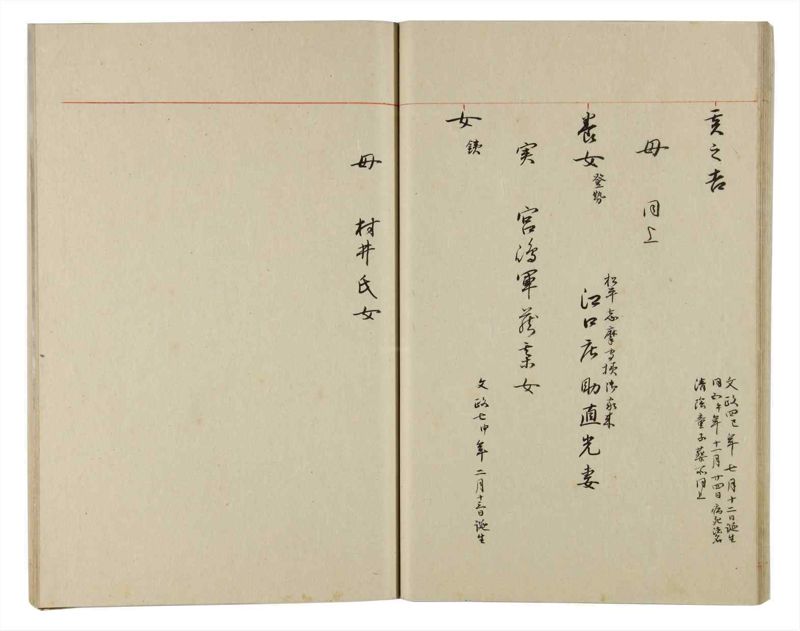 亥之吉
文政四巳年七月十二日誕生
同五午年十一月廿四日病死法名
清陰童子葬所同上
母 同上
養女 登勢
松平志摩守様御家来
江口庄助直光妻
実 宮崎軍蔵棄女
女 銕
文政七申年二月十三日誕生
母 村井氏女